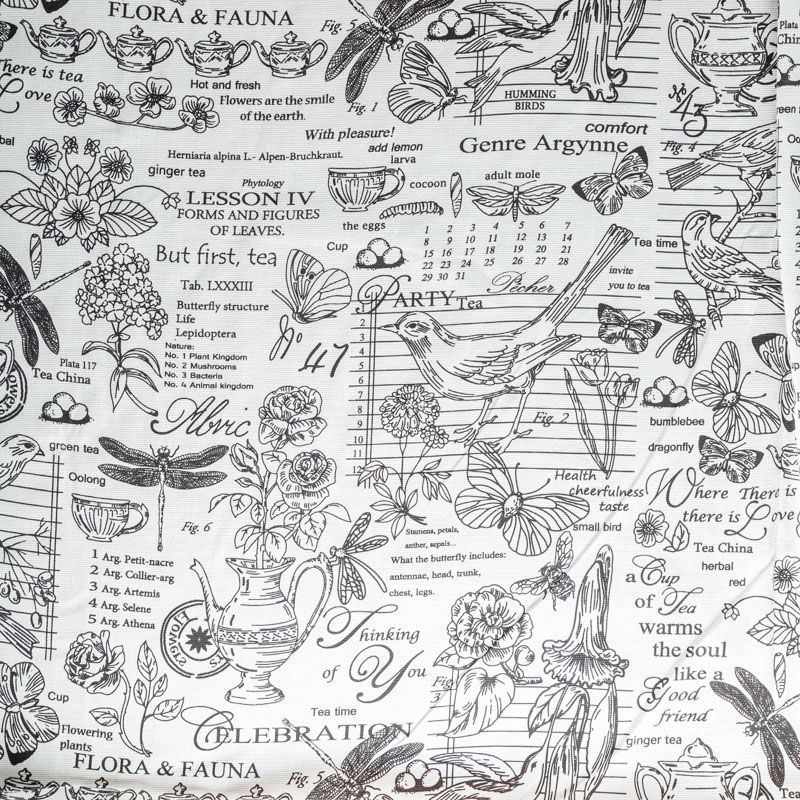 FLORA & FAUNA
Fig. 5
Plata
There is tea
Love
Hot and fresh
Flowers are the smile
of the earth.
Fig. 1
HUMMING
BIRDS
№
43
With pleasure!
add lemon
larva
comfort
Genre Argynne
Fig. 4
Herniaria alpina L.- Alpen-Bruchkraut.
ginger tea
Phytology
LESSON IV
FORMS AND FIGURES
OF LEAVES.
cocoon
adult mole
the eggs
1 2 3 4 5 6 7
8 9 10 11 12 13 14
15 16 17 18 19 20 21
22 23 24 25 26 27 28
29 30 31
Tea time
But first, tea
Cup
invite
you to tea
Pêcher
PARTY Tea
Tab. LXXXIII
Butterfly structure
Life
Lepidoptera
Nature:
No. 1 Plant Kingdom
No. 2 Mushrooms
No. 3 Bacteria
No. 4 Animal kingdom
№ 47
2
3
4
5
6
7
8
9
10
11
12
Plata 117
Tea China
Fig. 2
bumblebee
dragonfly
green tea
Oolong
Health
cheerfulness
taste
small bird
Where There is
there is Love
Fig. 6
Stamens, petals,
anther, sepals...
What the butterfly includes:
antennae, head, trunk,
chest, legs.
Tea China
herbal
red
1 Arg. Petit-nacre
2 Arg. Collier-arg
3 Arg. Artemis
4 Arg. Selene
5 Arg. Athena
a Cup
of Tea
warms
the soul
like a
Good
friend
Thinking
of You
Fig.
3
Cup
Tea time
CELEBRATION
Flowering
plants
ginger tea
FLORA & FAUNA
Fig. 5